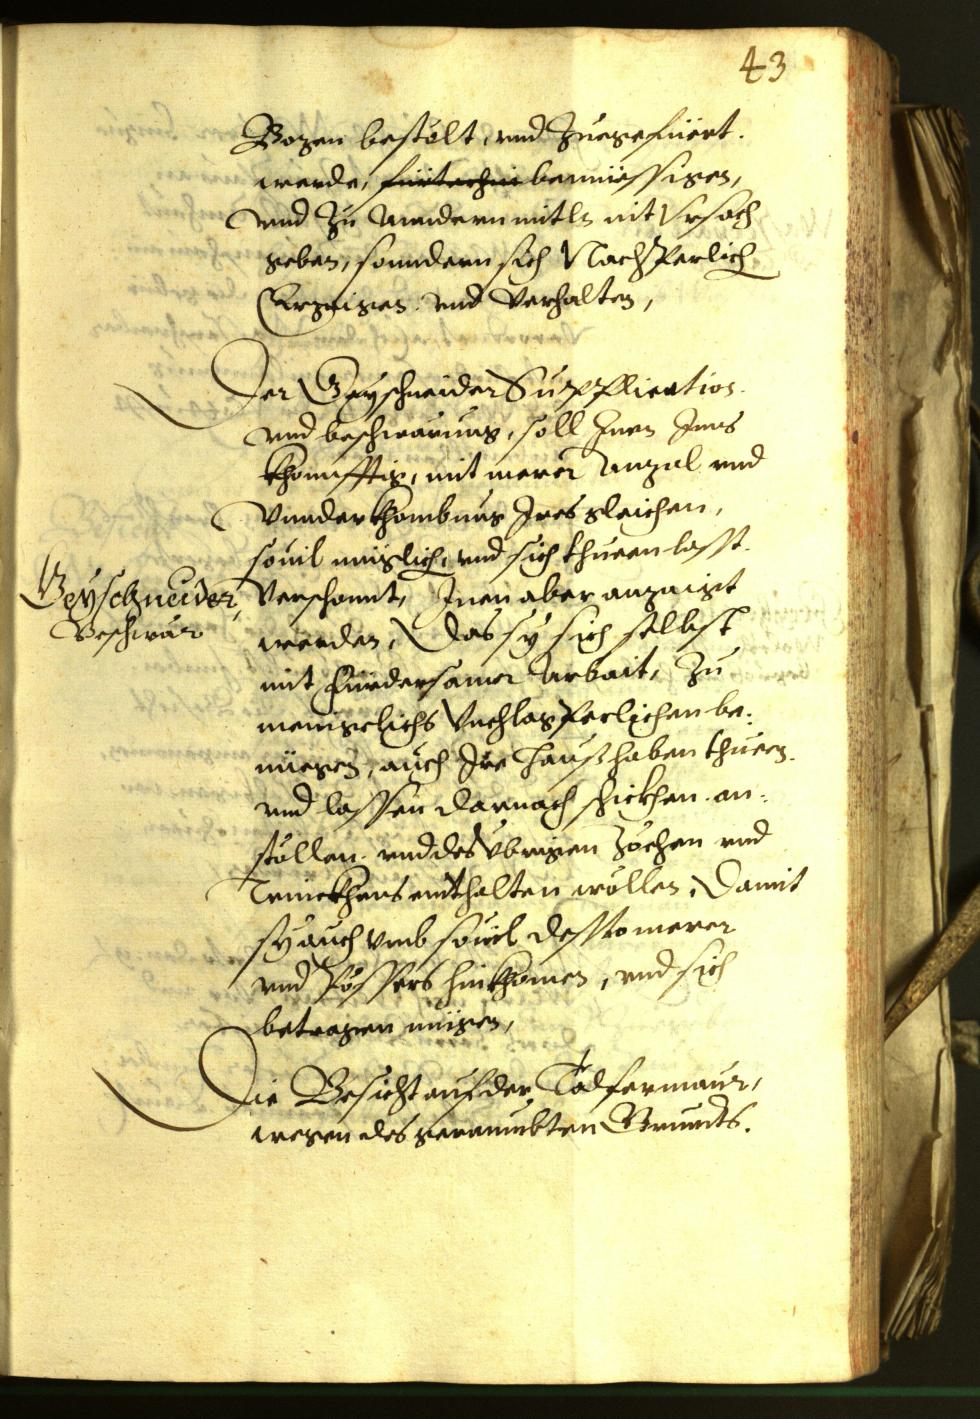 43
Bozen bestölt, und Zuegefüert.
werde, bemüessigen,
und zu anndern mitln nit Ursach
geben, sonndern sich Nachperlich
Erzaigen und Verhalten,
Der Geyschneider Supplication.
und beschwärung, soll Inen Ins
khonnfftig, mit merer Anzal und
Vnnderkhombung Ires gleichen,
souil müglich, und sich thuen lasst.
Verschonnt, Inen aber anzaigt
werden, Das sy sich selbst
mit fürdersamer Arbait, Zu
menigclichs Vnchlagperlichen be-
nüegen, auch Ire Haushaben thuen.
und lassen darnach schickhen an-
stöllen. und des Übrigen Zöchen und
Trinckhens enthalten wöllen, Damit
sy auch umb souil dessto merer
und pössers hinkhomen, und sich
betragen mügen,
Geyschneider,
Beschwär
Die Besicht auf der Talfermaur,
wegen des geraumbten Grundts.